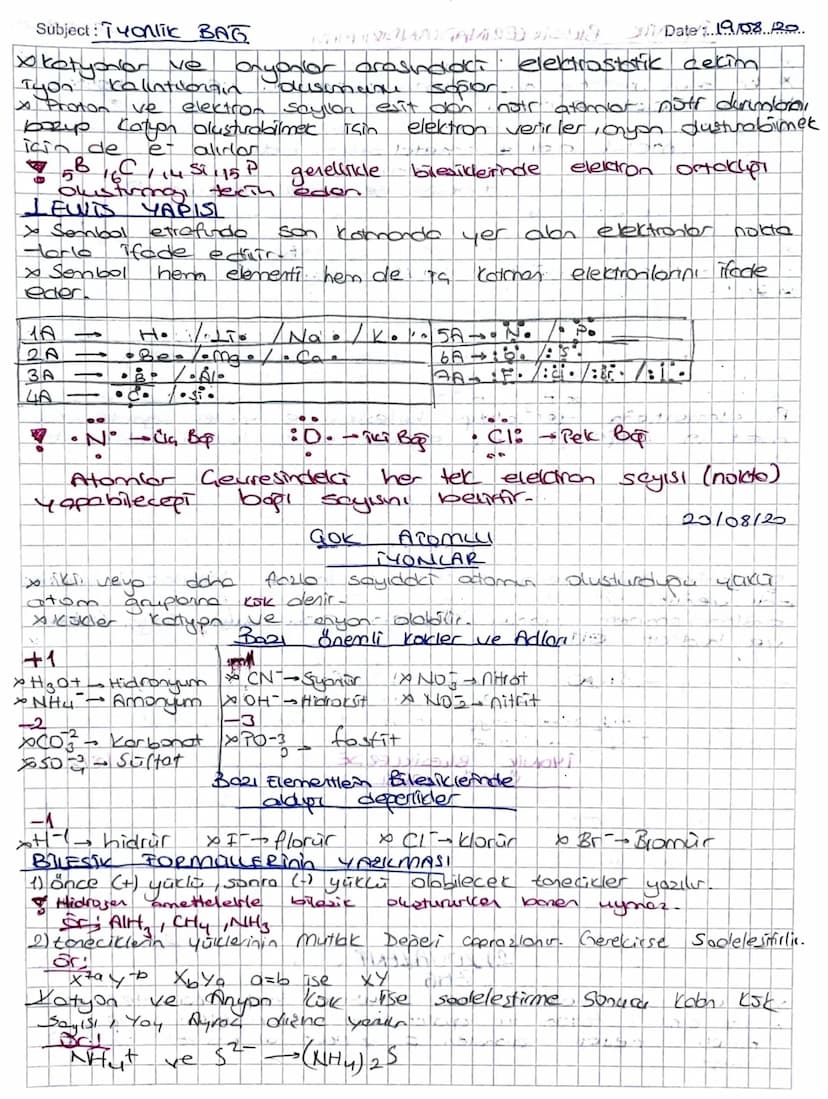 Subject: İyonik BAĞ Date: 19/08/20
× Katyonlar ve anyonlar arasındaki elektrostatik çekim
iyon kalıntılarının oluşumunu sağlar.
× Proton ve elektron sayıları eşit olan nötr atomlar nötr durumlarını
bozup katyon oluşturabilmek için elektron verirler, anyon oluşturabilmek
için de e- alırlar
! 5B, 6C, 14Si, 15P genellikle bileşiklerinde elektron ortaklığı
oluşturmayı tercih eden
LEWIS YAPISI
× Sembol etrafında son katmanda yer alan elektronlar nokta
-larla ifade edilir.
× Sembol hem elementi hem de iç katman elektronlarını ifade
eder.
1A → H· / Li· / Na· / K· 5A → N / P
2A → ·Be· / ·Mg· / ·Ca· 6A → O / S
3A → B / Al 7A → F / Cl / Br / I
4A → C / Si
! N → Üç Bağ O → İki Bağ Cl → Tek Bağ
Atomlar Çevresindeki her tek elektron sayısı (nokta)
yapabileceği bağı sayısını belirtir.
20/08/20
ÇOK ATOMLU
İYONLAR
× iki veya daha fazla sayıdaki atomun oluşturduğu yüklü
atom gruplarına kök denir.
× Kökler katyon ve anyon olabilir.
Bazı Önemli Kökler ve Adları
+1 -1
× H3O+ → Hidronyum × CN⁻ → Siyanür × NO3⁻ → nitrat
× NH4⁻ → Amonyum × OH⁻ → Hidroksit × NO2⁻ → nitrit
-2 -3
× CO3⁻² → Karbonat × PO⁻³ → fosfit
× SO4⁻² → Sülfat
Bazı Elementlerin Bileşiklerinde
aldığı değerlikler
-1
× H⁻¹ → hidrür × F⁻ → florür × Cl⁻ → klorür × Br⁻ → Bromür
BİLEŞİK FORMÜLLERİNİN YAZILMASI
1) önce (+) yüklü, sonra (-) yüklü olabilecek tanecikler yazılır.
! Hidrojen ametallerle bileşik oluştururken bazen uymaz.
Ör; AlH3, CH4, NH3
2) taneciklerin yüklerinin Mutlak Değeri çaprazlanır. Gerekirse Sadeleştirilir.
Ör:
X⁺ᵃ Y⁻ᵇ XbYa a=b ise XY
Katyon ve Anyon kök ise sadeleştirme Sonucu kalan kök
Sayısı, Yay Ayraç dışına yazılır
Ör:
NH4⁺ ve S²⁻ → (NH4)2S